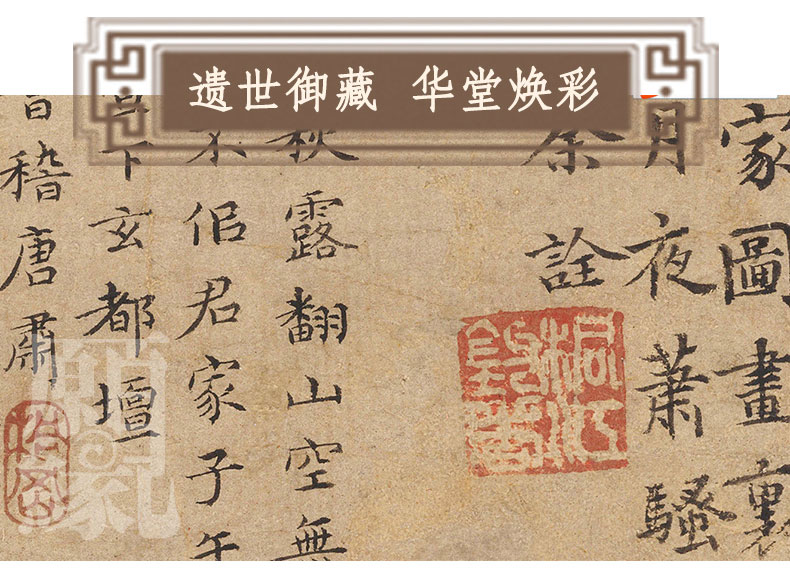 遗世御藏 华堂焕彩
家圖畫裏
月夜蕭騷
余詮
秋露翻山空無
不佀君家子午
下玄都壇
稽唐肅